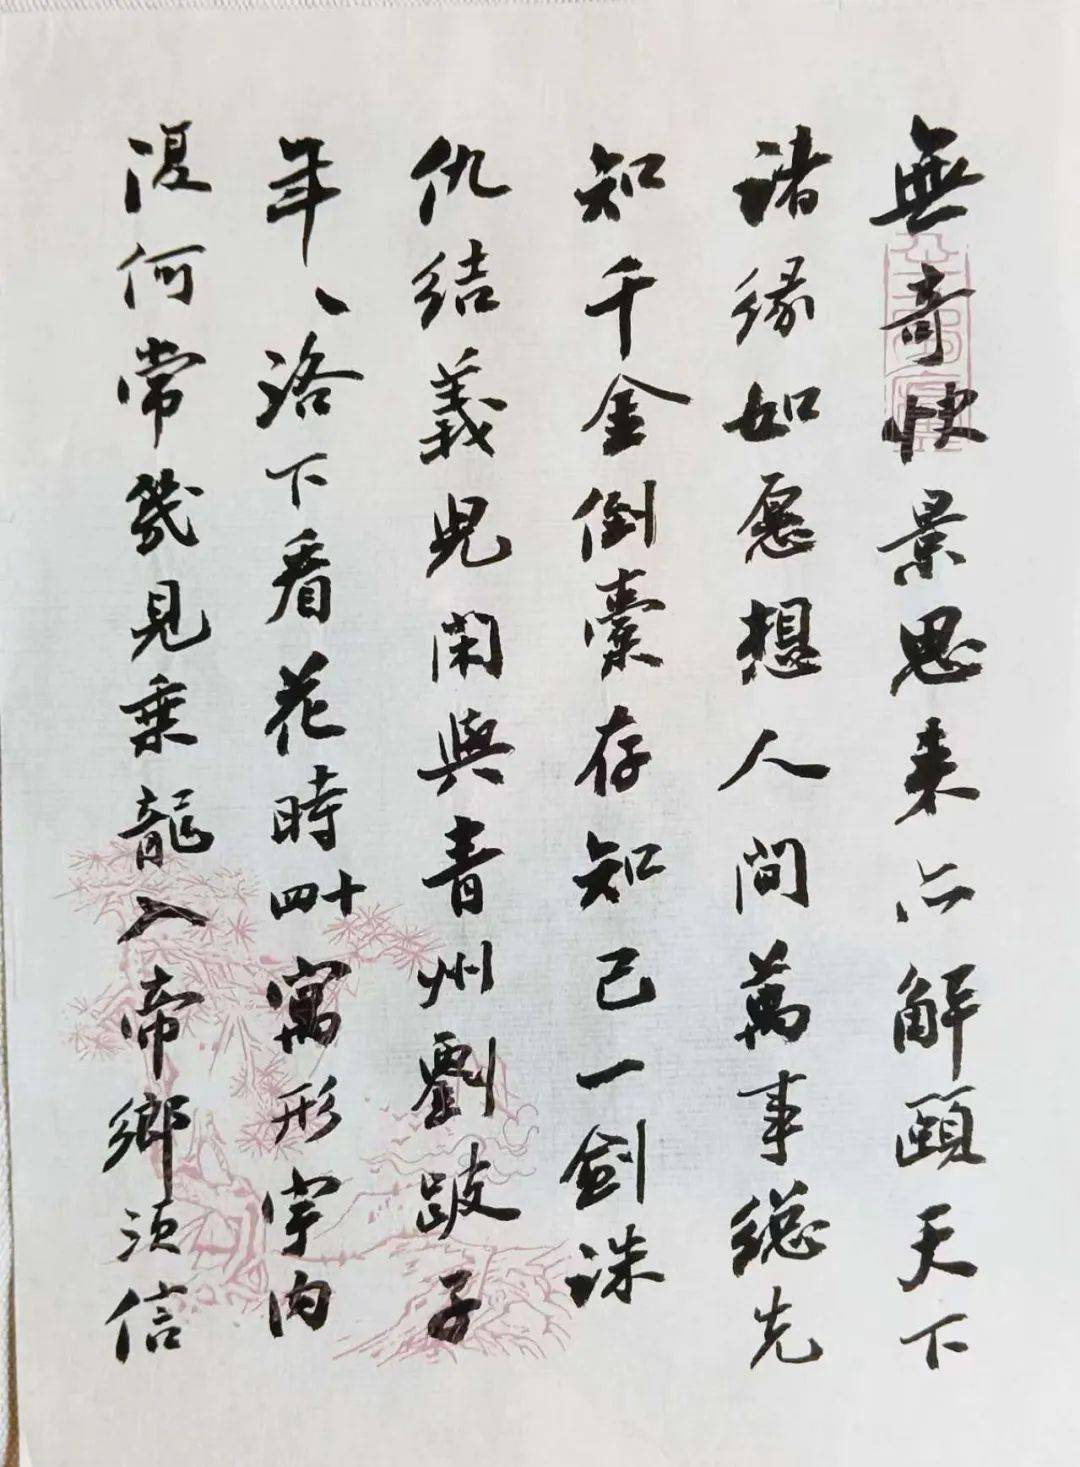 無奇快景思来亦解頤天下
諸缘如愿想人间萬事總先
知千金倒囊存知己一劍誅
仇结義兒閑與青州劉跛子
年、洛下看花時四十寓形宇内
復何常幾見乗龍入帝鄉須信